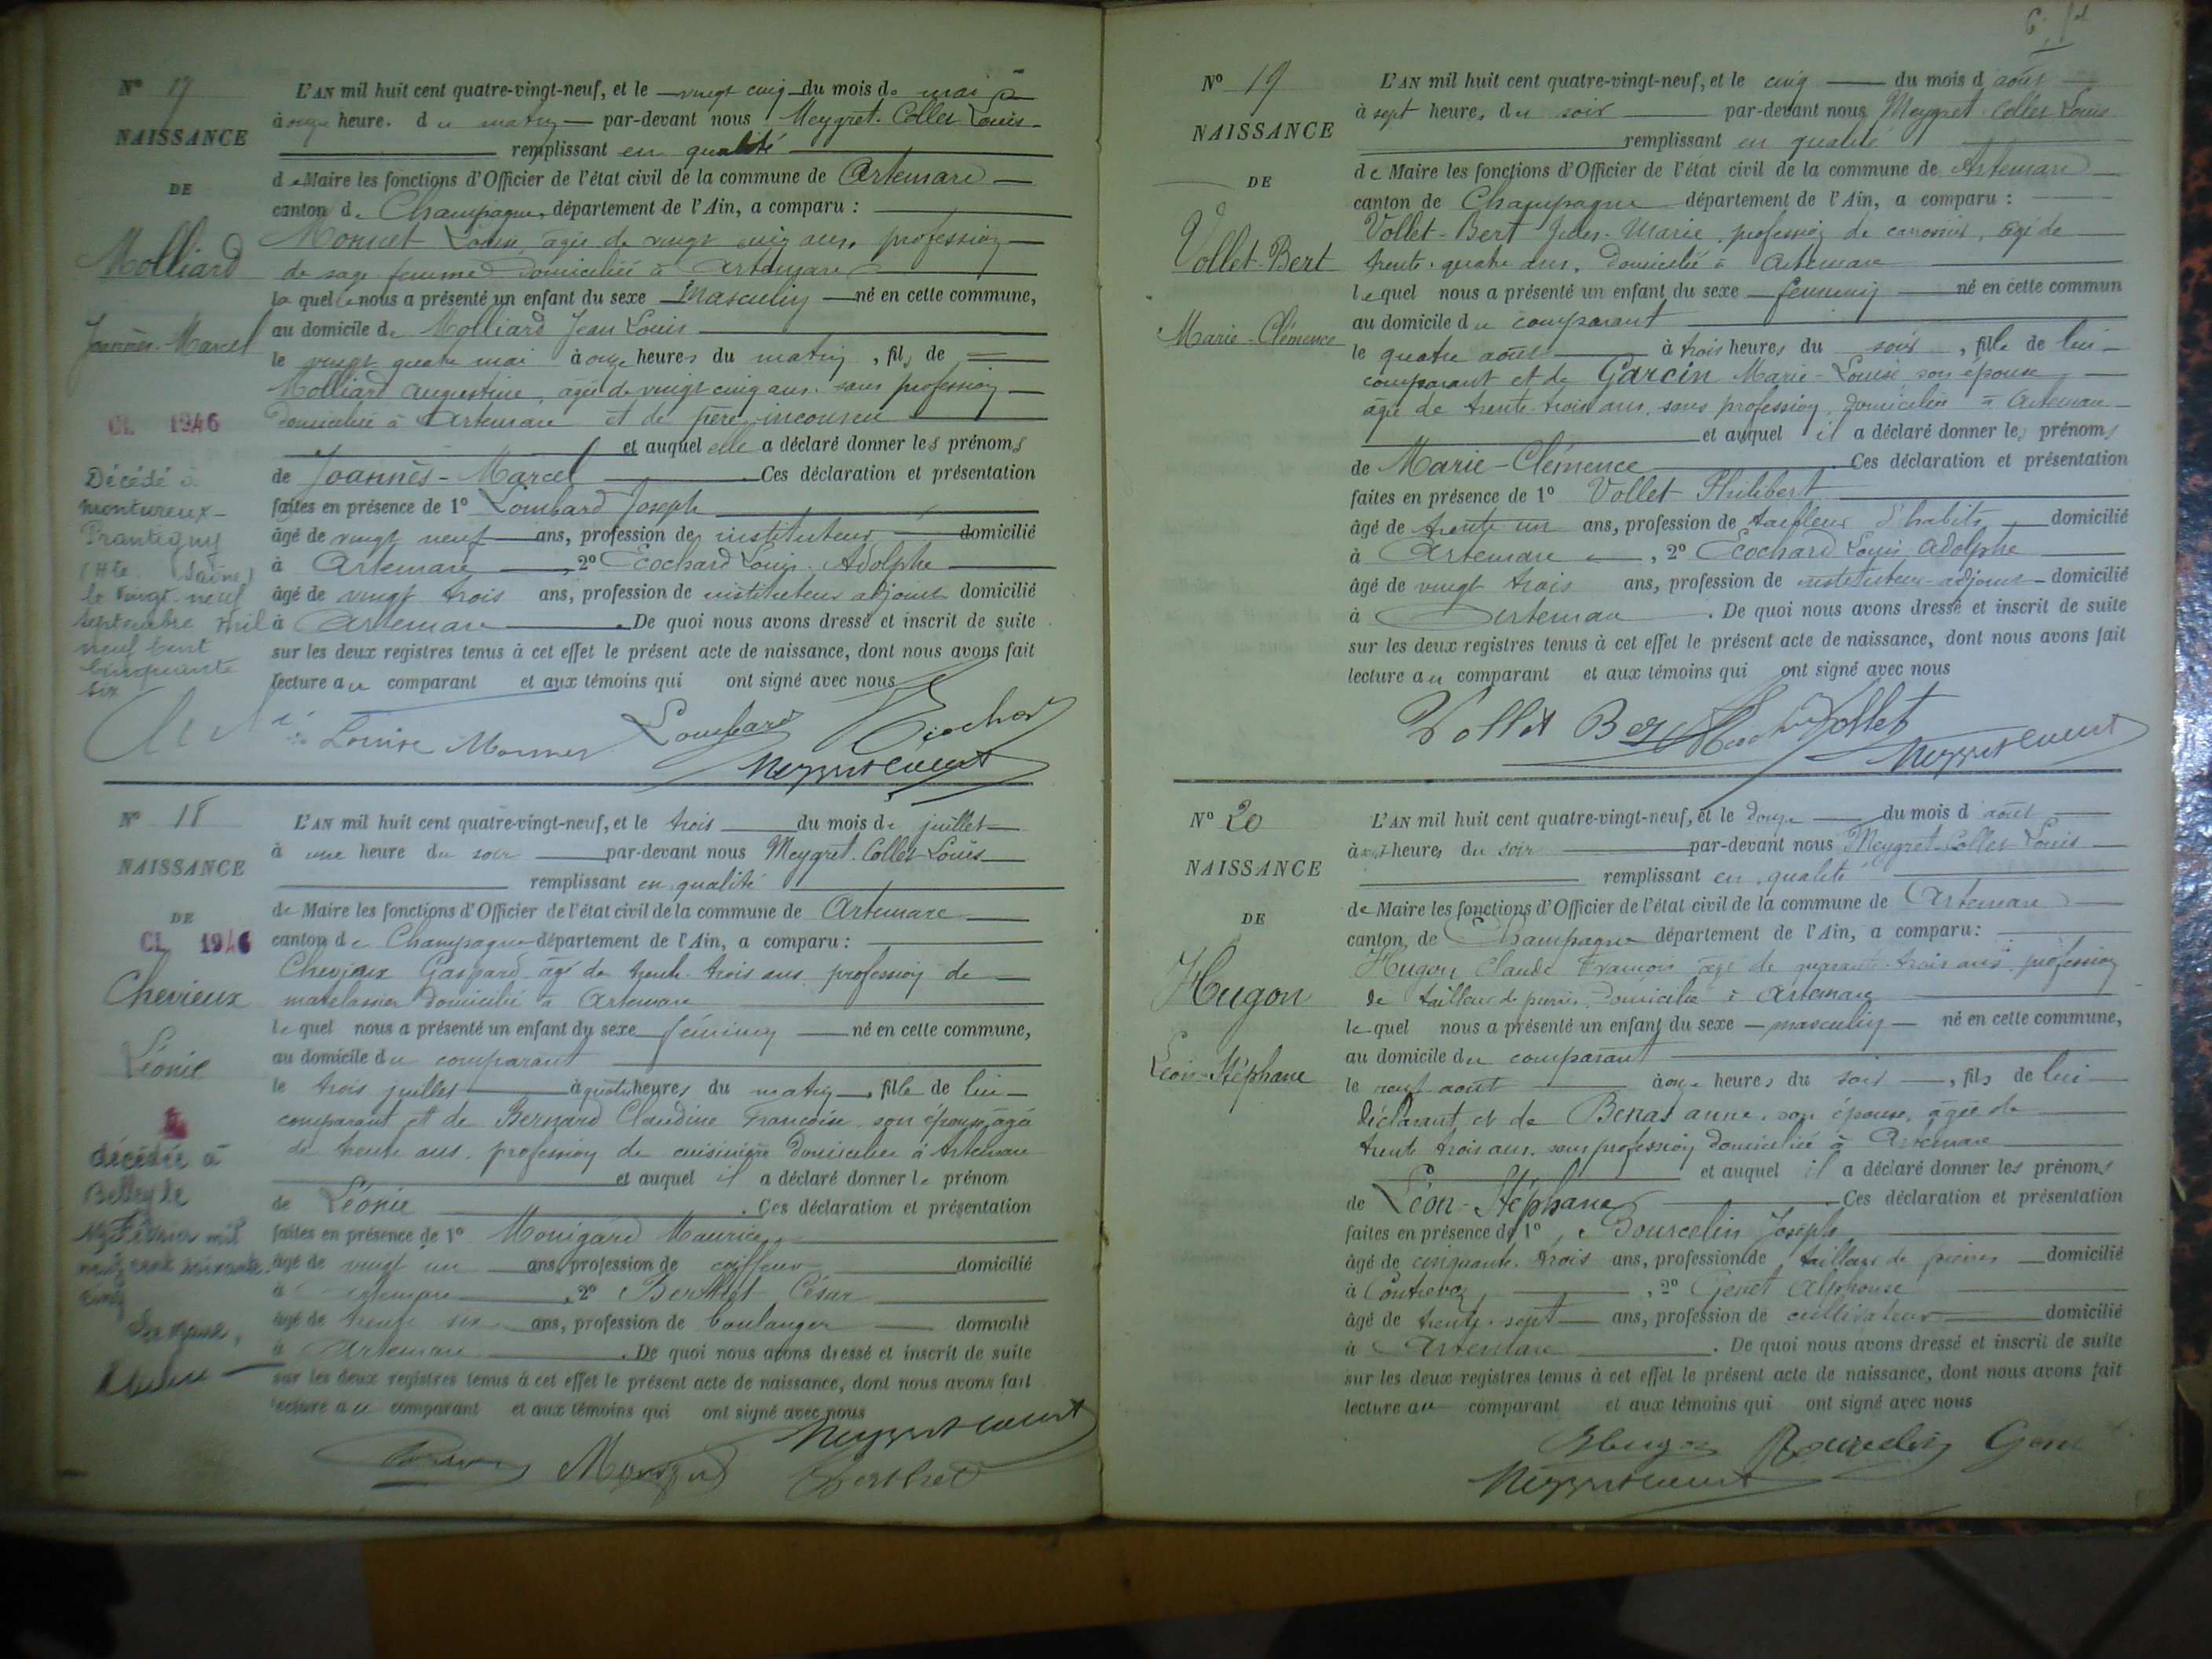 N° 17
NAISSANCE
DE
Molliard
Joannès-Marcel
CL 1946
Décédé à
montureux-
Prantigny
(Hte Saône)
le vingt-neuf
septembre mil
neuf cent
cinquante
six
L'AN mil huit cent quatre-vingt-neuf, et le vingt cinq du mois de mai
à onze heure. du matin par-devant nous Meygret-Collet Louis
remplissant en qualité
de Maire les fonctions d'Officier de l'état civil de la commune de Artemare
canton de Champagne, département de l'Ain, a comparu :
Monnet Louise âgée de vingt cinq ans, profession
de sage femme domiciliée à Artemare
laquelle nous a présenté un enfant du sexe Masculin né en cette commune,
au domicile de Molliard Jean Louis
le vingt quatre mai à onze heures du matin, fils de
Molliard Augustine, âgée de vingt cinq ans, sans profession
domiciliée à Artemare et de père inconnu
et auquel elle a déclaré donner les prénoms
de Joannès-Marcel. Ces déclaration et présentation
faites en présence de 1° Lombard Joseph
âgé de vingt neuf ans, profession de instituteur domicilié
à Artemare, 2° Ecochard Louis Adolphe
âgé de vingt trois ans, profession de instituteur adjoint domicilié
à Artemare. De quoi nous avons dressé et inscrit de suite
sur les deux registres tenus à cet effet le présent acte de naissance, dont nous avons fait
lecture au comparant et aux témoins qui ont signé avec nous
Louise Monnet Lombard Ecochard
N° 18
NAISSANCE
DE
CL 1946
Chevieux
Léonie
décédée à
Belley le
Février mil
neuf cent soixante
cinq
L'AN mil huit cent quatre-vingt-neuf, et le trois du mois de juillet
à une heure du soir par-devant nous Meygret-Collet Louis
remplissant en qualité
de Maire les fonctions d'Officier de l'état civil de la commune de Artemare
canton de Champagne département de l'Ain, a comparu :
Gaspard âgé de trente trois ans profession de
matelassier domicilié à Artemare
lequel nous a présenté un enfant du sexe féminin né en cette commune,
au domicile du comparant
le trois juillet à quatre heures du matin, fille de lui
comparant et de Bernard Claudine Francoise son épouse, âgée
de trente ans, profession de cuisinière domiciliée à Artemare
et auquel il a déclaré donner le prénom
de Léonie. Ces déclaration et présentation
faites en présence de 1° Maurice
âgé de vingt un ans, profession de coiffeur domicilié
à Artemare, 2° Berthet César
âgé de trente six ans, profession de boulanger domicilié
à Artemare. De quoi nous avons dressé et inscrit de suite
sur les deux registres tenus à cet effet le présent acte de naissance, dont nous avons fait
lecture au comparant et aux témoins qui ont signé avec nous
Berthet
N° 19
NAISSANCE
DE
Vollet-Bert
Marie-Clémence
L'AN mil huit cent quatre-vingt-neuf, et le cinq du mois d août
à sept heures du soir par-devant nous Meygret-Collet Louis
remplissant en qualité
de Maire les fonctions d'Officier de l'état civil de la commune de Artemare
canton de Champagne département de l'Ain, a comparu :
Vollet-Bert Jules-Marie, profession de carrossier, âgé de
trente-quatre ans, domicilié à Artemare
lequel nous a présenté un enfant du sexe féminin né en cette commun
au domicile du comparant
le quatre août à trois heures du soir, fille de lui
comparant et de Garcin Marie-Louise son épouse
âgée de trente trois ans, sans profession, domiciliée à Artemare
et auquel il a déclaré donner les prénoms
de Marie-Clémence. Ces déclaration et présentation
faites en présence de 1° Vollet Philibert
âgé de trente un ans, profession de tailleur d'habits domicilié
à Artemare, 2° Ecochard Louis Adolphe
âgé de vingt trois ans, profession de instituteur-adjoint domicilié
à Artemare. De quoi nous avons dressé et inscrit de suite
sur les deux registres tenus à cet effet le présent acte de naissance, dont nous avons fait
lecture au comparant et aux témoins qui ont signé avec nous
Vollet Bert Vollet
N° 20
NAISSANCE
DE
Hugon
Léon-Stéphane
L'AN mil huit cent quatre-vingt-neuf, et le douze du mois d août
à heures du soir par-devant nous Meygret-Collet Louis
remplissant en qualité
de Maire les fonctions d'Officier de l'état civil de la commune de Artemare
canton de Champagne département de l'Ain, a comparu :
Hugon Claude Francois âgé de quarante trois ans profession
de tailleur de pierres, domicilié à Artemare
lequel nous a présenté un enfant du sexe masculin né en cette commune,
au domicile du comparant
le neuf août à onze heures du soir, fils de lui
déclarant et de Benas anne, son épouse, âgée de
trente trois ans, sans profession domiciliée à Artemare
et auquel il a déclaré donner les prénoms
de Léon-Stéphane. Ces déclaration et présentation
faites en présence de 1° Bourcelin Joseph
âgé de cinquante-trois ans, profession de tailleur de pierres domicilié
à Contrevoz, 2° Genet Alphonse
âgé de trente-sept ans, profession de cultivateur domicilié
à Artemare. De quoi nous avons dressé et inscrit de suite
sur les deux registres tenus à cet effet le présent acte de naissance, dont nous avons fait
lecture au comparant et aux témoins qui ont signé avec nous
Hugon Bourcelin Genet